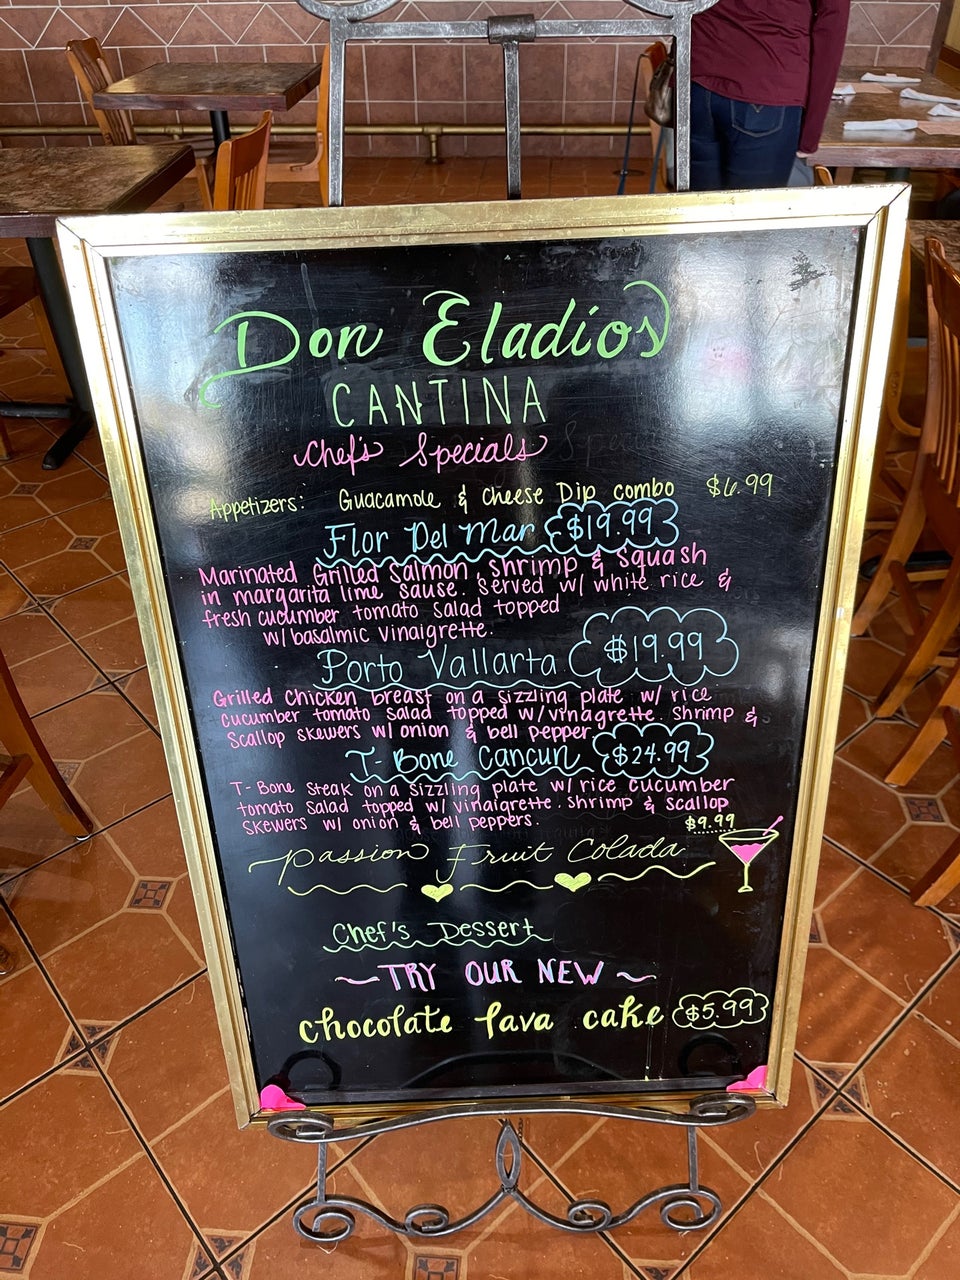 Don Eladios
CANTINA
Chef's Specials
Appetizers: Guacamole & Cheese Dip combo $6.99
Flor Del Mar $19.99
Marinated Grilled salmon, shrimp & squash
in margarita lime sause. Served w/ white rice &
fresh cucumber tomato salad topped
w/ basalmic vinaigrette.
Porto Vallarta $19.99
Grilled Chicken breast on a sizzling plate w/ rice
cucumber tomato salad topped w/ vinagrette. Shrimp &
Scallop skewers w/ onion & bell pepper
T-Bone Cancun $24.99
T-Bone Steak on a sizzling plate w/ rice cucumber
tomato salad topped w/ vinaigrette. Shrimp & scallop
skewers w/ onion & bell peppers.
$9.99
Passion Fruit Colada
Chef's Dessert
~TRY OUR NEW~
chocolate lava cake $5.99